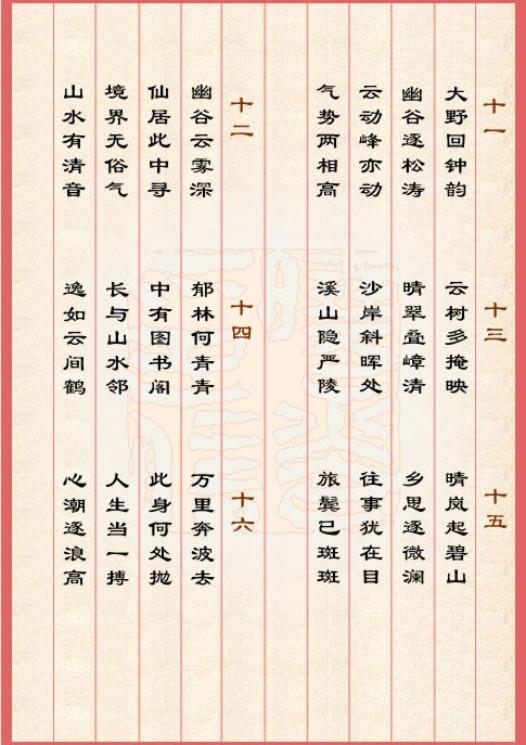 十一
大野回钟韵
幽谷逐松涛
云动峰亦动
气势两相高
十二
幽谷云雾深
仙居此中寻
境界无俗气
山水有清音
十三
云树多掩映
晴翠叠嶂清
沙岸斜晖处
溪山隐严陵
十四
郁林何青青
中有图书阁
长与山水邻
逸如云间鹤
十五
晴岚起碧山
乡思逐微澜
往事犹在目
旅鬓已斑斑
十六
万里奔波去
此身何处抛
人生当一搏
心潮逐浪高